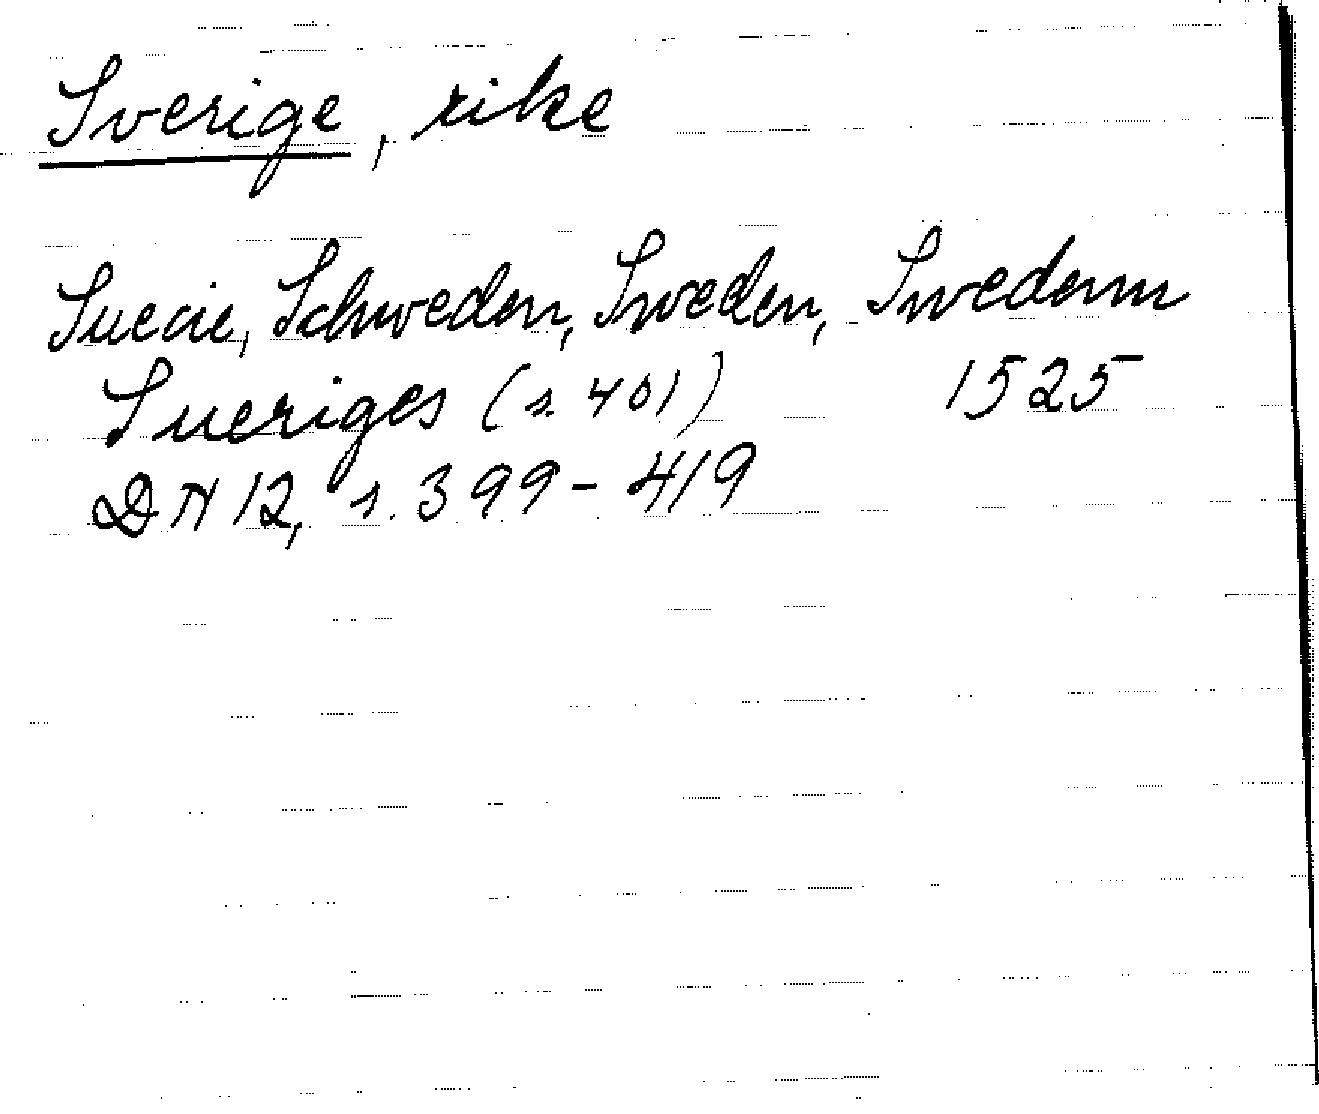 Sverige, rike
Suecie, Schweden, Sweden, Swedenn
Sueriges (s. 401) 1525
DN 12, s. 399-419